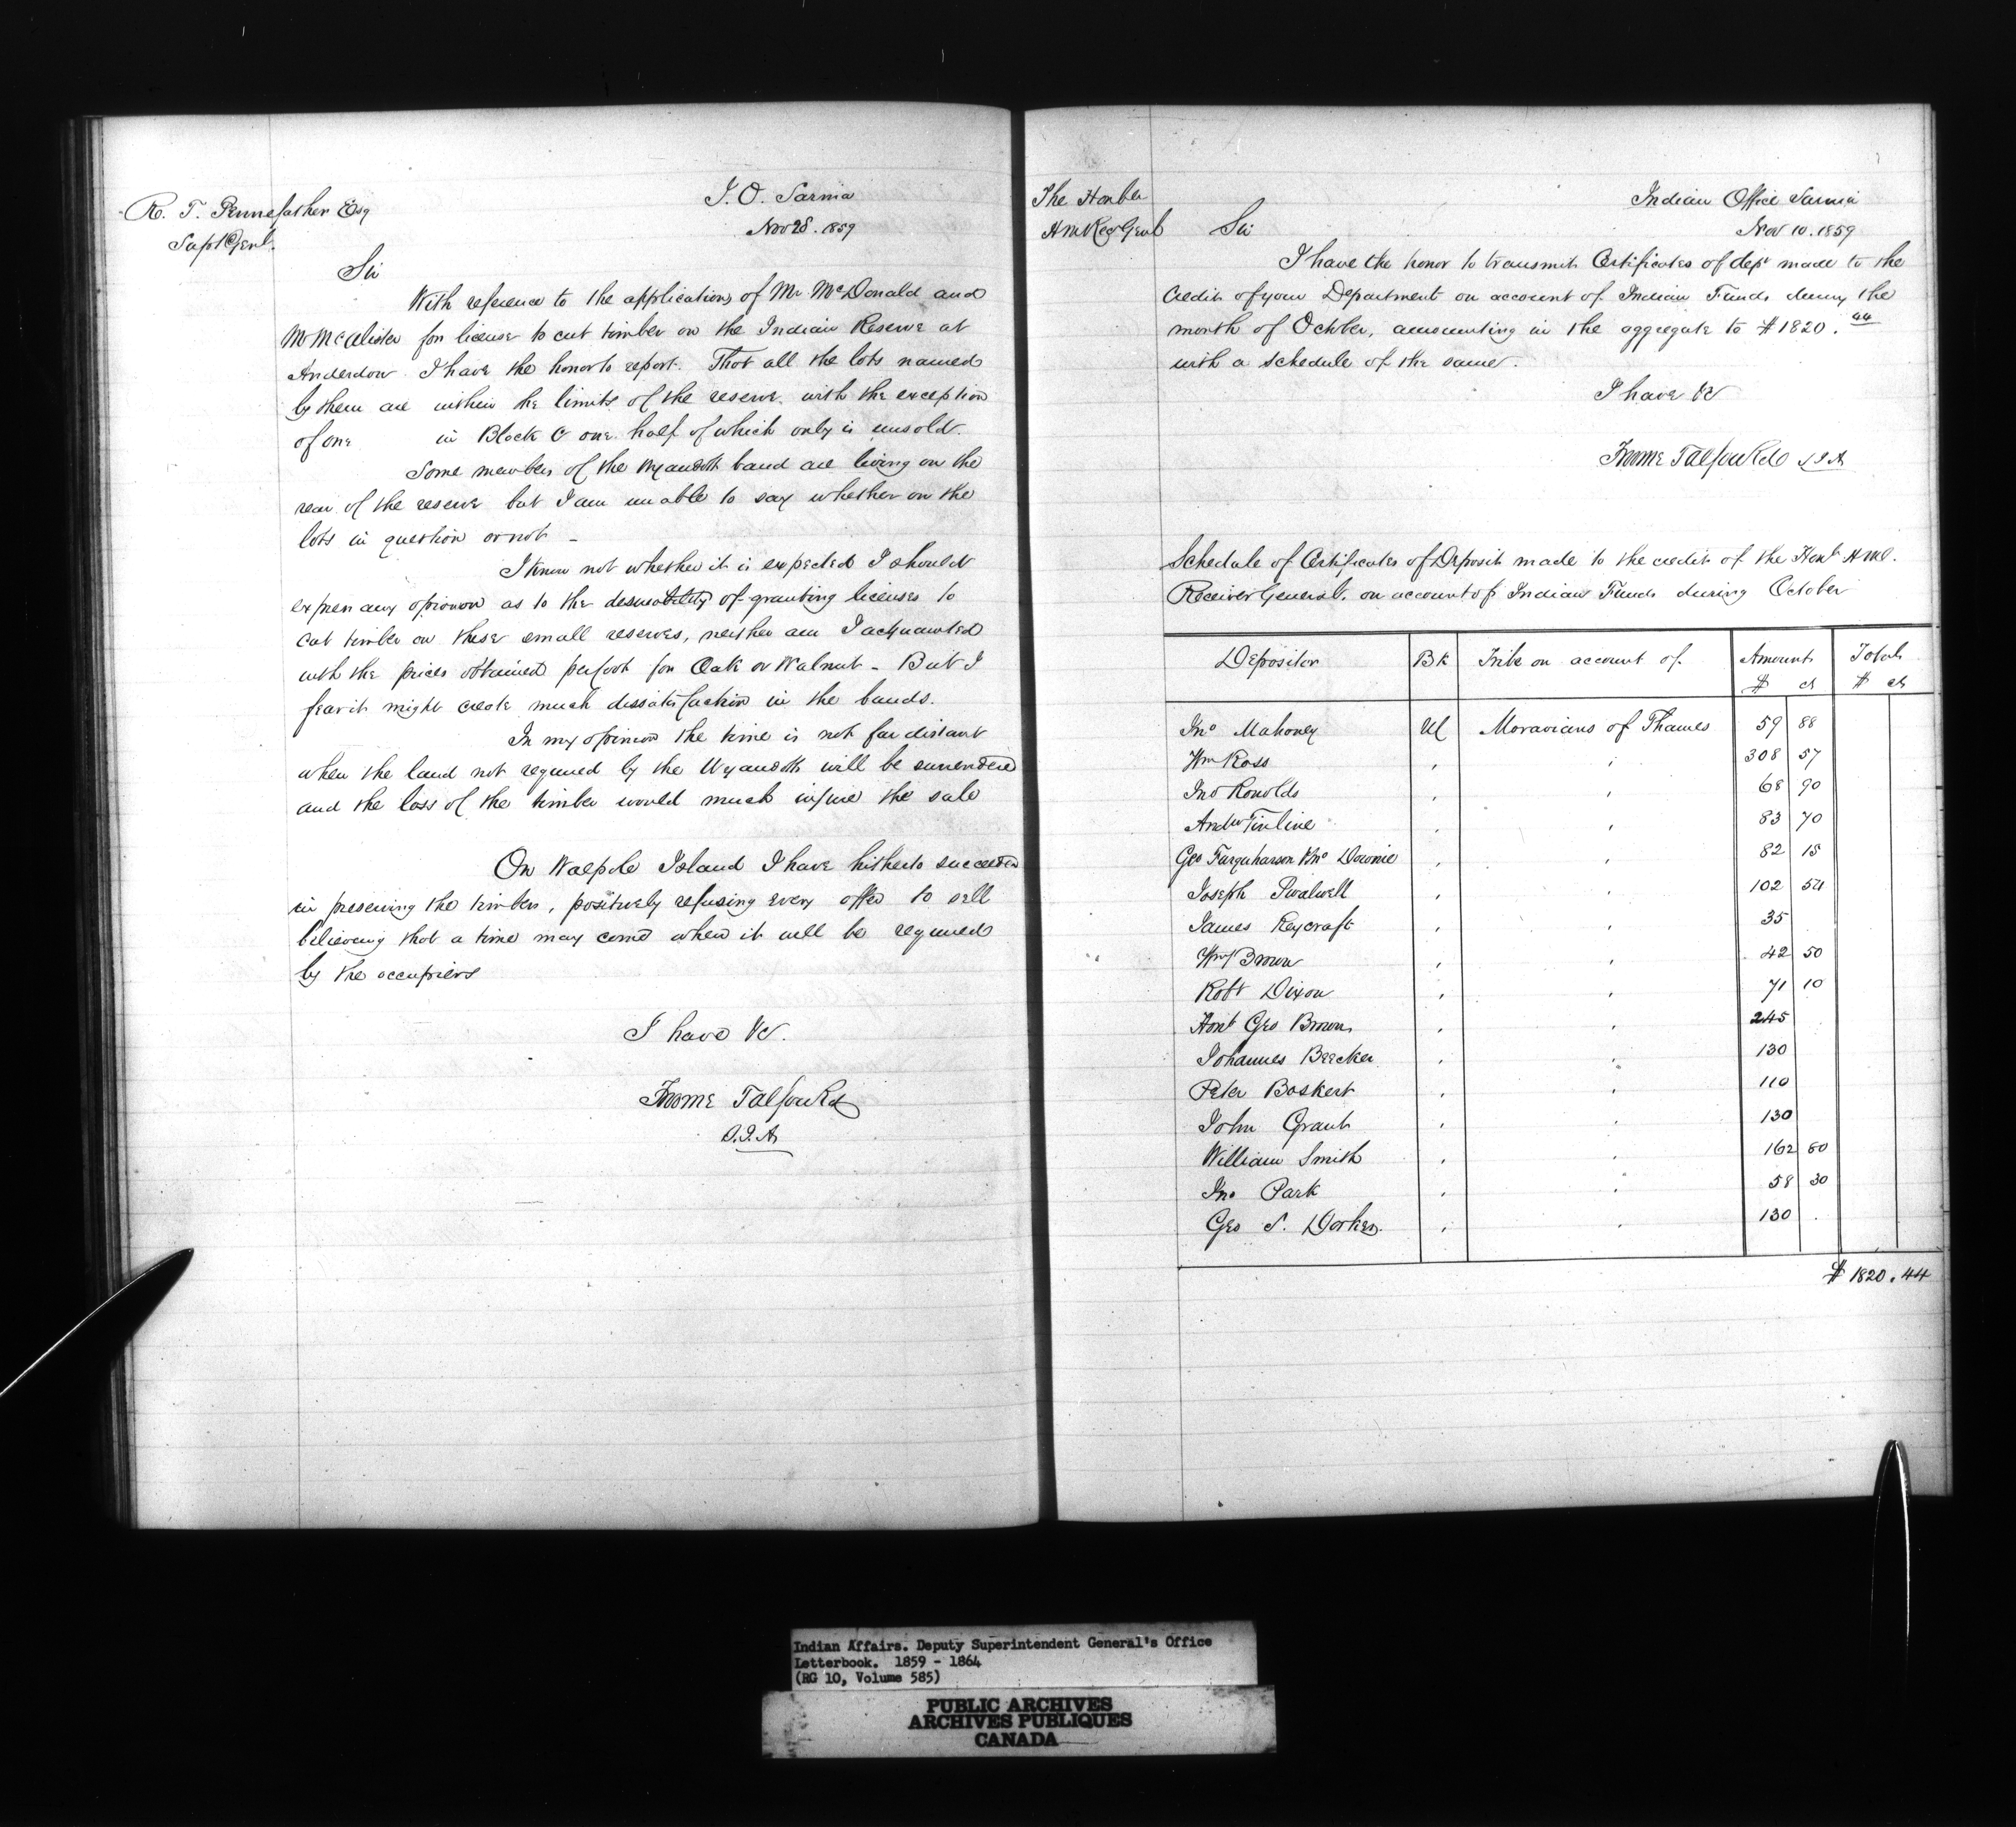 R. T. Pennefather Esq
Supt Genl.
I. O. Sarnia
Nov 28. 1859
Sir
With reference to the applications of Mr McDonald and
Mr McAlister for license to cut timber on the Indian Reserve at
Anderdon I have the honor to report. That all the lots named
by them are within the limits of the reserve, with the exception
of one in Block C one half of which only is unsold.
Some members of the Wyandott band are living on the
rear of the reserve but I am unable to say whether on the
lots in question or not -
I know not whether it is expected I should
express any opinion as to the of granting licenses to
cut timber on these small reserves, neither am I acquainted
with the prices obtained per foot for Oak or Walnut - But I
fear it might create much dissatisfaction in the bands.
In my opinion the time is not far distant
when the land not required by the Wyandotts will be surrendered
and the loss of the timber would much injure the sale
On Walpole Island I have hitherto succeeded
in preserving the timber, positively refusing every offer to sell
believing that a time may come when it will be required
by the occupiers
I have &c.
Froome Talfourd
S.I.A
The Honble
H M Rec Genl
Indian Office Sarnia
Nov 10. 1859
Sir
I have the honor to transmit Certificates of dept made to the
Credit of your Department on account of Indian Funds during the
month of October, amounting in the aggregate to $1820.44
with a schedule of the same.
I have &c
Froome Talfourd S I A
Schedule of Certificates of Deposit made to the credit of the Honl H M.
Receiver General, on account of Indian Funds during October
Depositor Bk Tribe on account of Amount Total
$ cts $ cts
Jno Mahoney UC Moravians of Thames 59 88
Wm Ross " " 308 57
Jno Ronolds " " 68 90
Andw Tinline " " 83 70
Geo Farquharson & Jno Downie " " 82 15
Joseph Swalwell " " 102 54
James Reycraft " " 35
Wm Brown " " 42 50
Robt Dixon " " 71 10
Honl Geo Brown " " 245
Johannes Beecker " " 130
Peter Boskert " " 110
John Grant " " 130
William Smith " " 162 80
Jno Park " " 58 30
Geo S. " " 130
$ 1820.44
Indian Affairs. Deputy Superintendent General's Office
Letterbook. 1859 - 1864
(RG 10, Volume 585)
PUBLIC ARCHIVES
ARCHIVES PUBLIQUES
CANADA